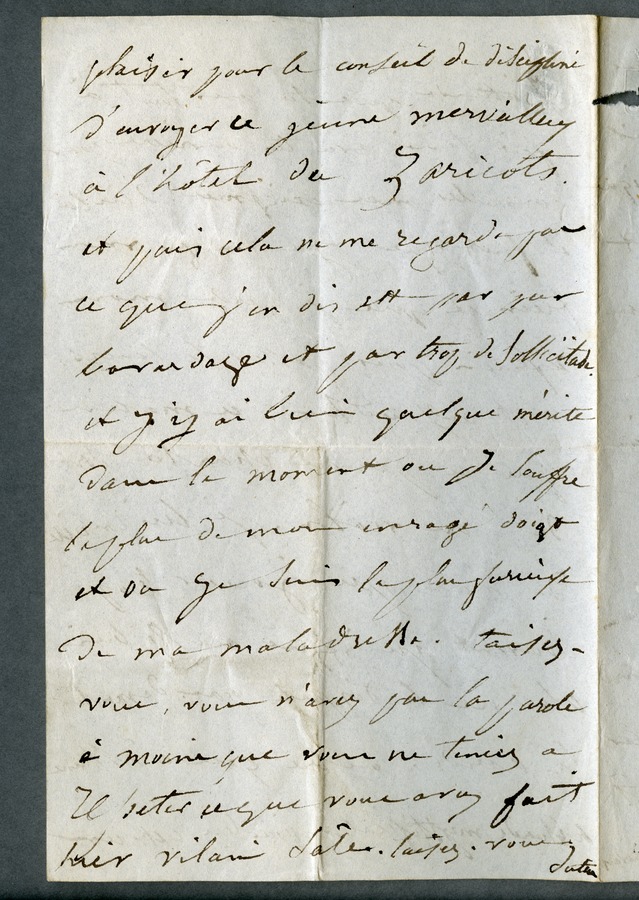 plaisir pour le conseil de discipline
d'envoyer ce jeune merveilleux
à l'hôtel des haricots.
et puis cela ne me regarde pas
ce que j'en dis est par pur
bavardage et par trop de sollicitude.
et j'y ai bien quelque mérite
dans le moment ou je souffre
le plus de mon enragé doigt
et ou je suis le plus furieuse
de ma maladresse. taisez-
vous, vous n'avez pas la parole
à moins que vous ne teniez a
répéter ce que vous avez fait
hier vilain taisez-vous